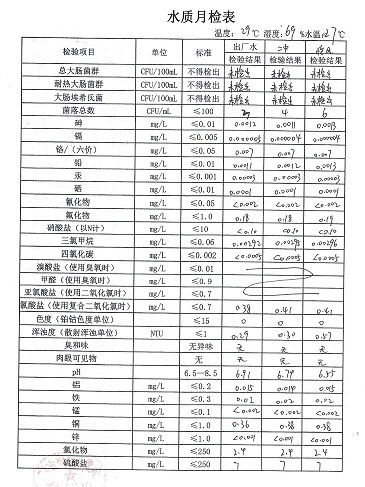 水质月检表
温度: 29℃ 湿度: 69% 水温: 27℃
检验项目 单位 标准 出厂水 二中
检验结果 检验结果 检验结果
总大肠菌群 CFU/100mL 不得检出 未检出 未检出 未检出
耐热大肠菌群 CFU/100mL 不得检出 未检出 未检出 未检出
大肠埃希氏菌 CFU/100mL 不得检出 未检出 未检出 未检出
菌落总数 CFU/mL ≤100 4 6
砷 mg/L ≤0.01 0.0012 0.0011 0.0013
镉 mg/L ≤0.005 0.000005 0.000004 0.000004
铬/(六价) mg/L ≤0.05 0.007 0.007 0.007
铅 mg/L ≤0.01 0.0011 0.0012 0.0013
汞 mg/L ≤0.001 0.00003 0.00003 0.00003
硒 mg/L ≤0.01 0.0001 0.0001 0.0001
氰化物 mg/L ≤0.05 <0.002 <0.002 <0.002
氟化物 mg/L ≤1.0 0.18 0.18 0.19
硝酸盐(以N计) mg/L ≤10 <0.10 <0.10 <0.10
三氯甲烷 mg/L ≤0.06 0.00292 0.00295 0.00296
四氯化碳 mg/L ≤0.002 <0.0005 <0.0005 <0.0005
溴酸盐(使用臭氧时) mg/L ≤0.01
甲醛(使用臭氧时) mg/L ≤0.9
亚氯酸盐(使用二氧化氯时) mg/L ≤0.7
氯酸盐(使用复合二氧化氯时) mg/L ≤0.7 0.38 0.41 0.41
色度(铂钴色度单位) ≤15 0 0 0
浑浊度(散射浑浊单位) NTU ≤1 0.29 0.30 0.57
臭和味 无异味 无 无 无
肉眼可见物 无 无 无 无
pH 6.5-8.5 6.91 6.79 6.55
铝 mg/L ≤0.2 0.015 0.014 0.015
铁 mg/L ≤0.3 0.02 0.02 0.02
锰 mg/L ≤0.1 <0.002 <0.002 <0.002
铜 mg/L ≤1.0 0.36 0.38 0.38
锌 mg/L ≤1.0 <0.001 <0.001 <0.001
氯化物 mg/L ≤250 2.4 2.4 2.4
硫酸盐 mg/L ≤250 7 7 7